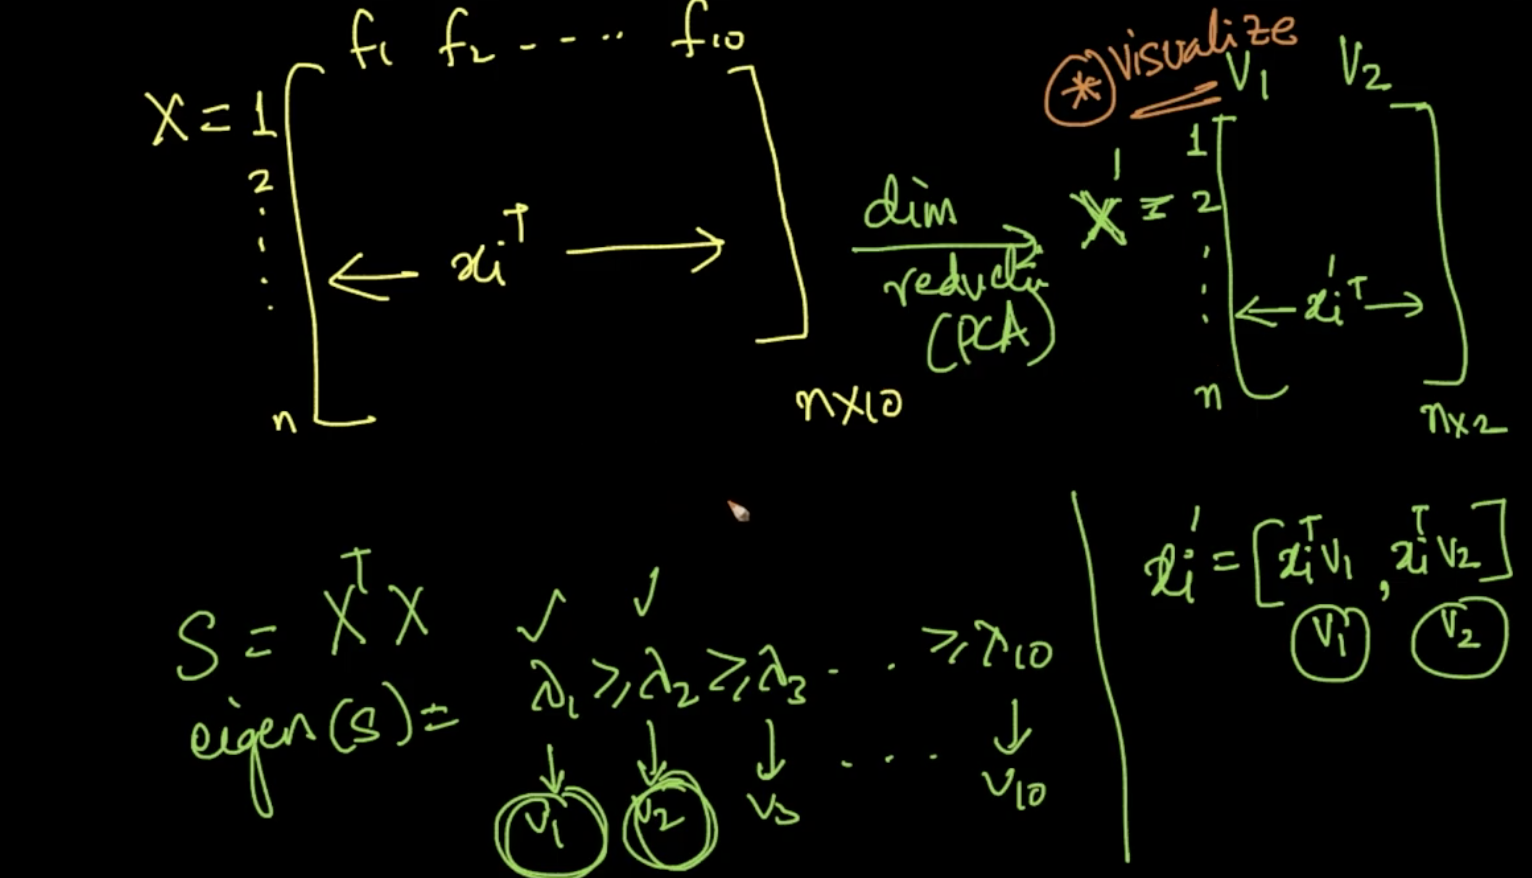 f1 f2 ---.. f10
X = 1
2
⋮
n
← xiᵀ →
n×10
dim
reductn
(PCA)
* visualize
V1 V2
X' = 1
2
⋮
n
← xi'ᵀ →
n×2
S = XᵀX
eigen(S) = λ1 ≥ λ2 ≥ λ3 . . . ≥ λ10
↓ ↓ ↓ ↓
V1 V2 V3 . . . . V10
xi' = [xiᵀV1, xiᵀV2]
V1 V2